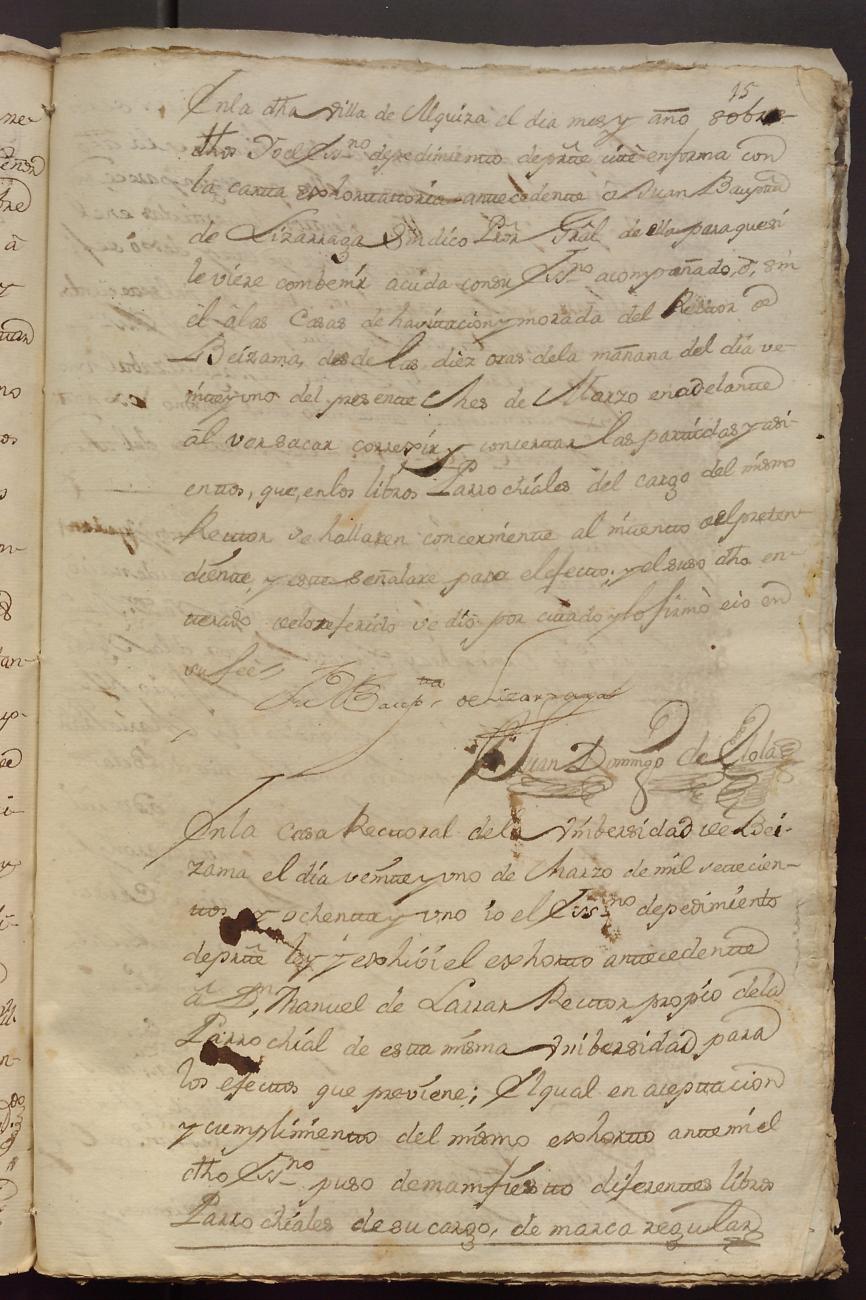 15
En la dha villa de Alquiza el dia mes y año sobre-
dhos Yo el Essno de pedimiento de prte cité en forma con
la carta exhortattoria antecedente a Juan Bauptta
de Lizarraga Sindico Pror Gràl de ella para que si
le viere combenir acuda con su Essno acompañado, ò, sin
el à las Casas de havitacion y morada del Rector de
Beizama, desde las diez oras de la mañana del dia ve-
inte y uno del presente Mes de Marzo en adelante
àl ver sacar correxir y concertar las partidas y asi-
entos, que, en los libros Parrochiales del cargo del mismo
Rector se hallaren concerniente al intento del preten-
diente, y este señalare para el efecto; y el suso dho en-
terado de lo referido se diò por citado y lo firmò e io en
su fee
Ju Baupta de Lizarraga
Juan Domingo de Elola
En la Casa Rectoral de la Vnibersidad de Bei-
zama el dia veinte y uno de Marzo de mil setecien-
ttos y ochentta y uno io el Essno de pedimiento
de prte ley y exhiví el exhorto antecedente
à Dn Manuel de Larrar Rector propio de la
Parrochial de esta misma Vnibersidad para
los efectos que previene; El qual en aceptacion
y cumplimiento del mismo exhorto ante mi el
dho Essno puso de manifiesto diferentes libros
Parrochiales de su cargo, de marca regular